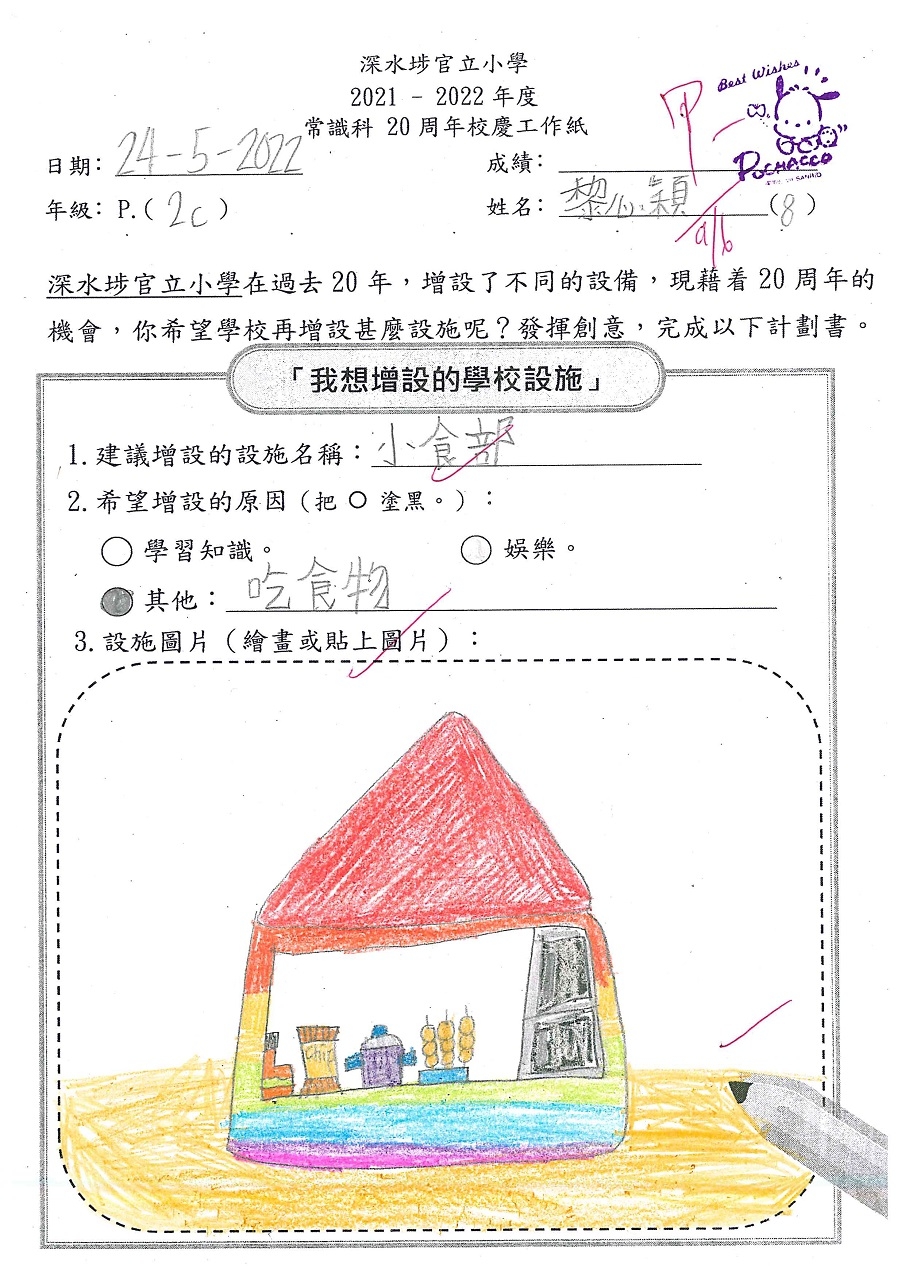 深水埗官立小學
2021 - 2022 年度
常識科 20 周年校慶工作紙
Best Wishes
POCHACCO
日期: 24-5-2022
成績: 甲-
年級: P.( 2c )
姓名: 黎心穎 (8)
a/b
深水埗官立小學在過去 20 年，增設了不同的設備，現藉着 20 周年的
機會，你希望學校再增設甚麼設施呢？發揮創意，完成以下計劃書。
「我想增設的學校設施」
1. 建議增設的設施名稱：小食部
2. 希望增設的原因（把 〇 塗黑。）：
學習知識。 娛樂。
其他：吃食物
3. 設施圖片（繪畫或貼上圖片）：